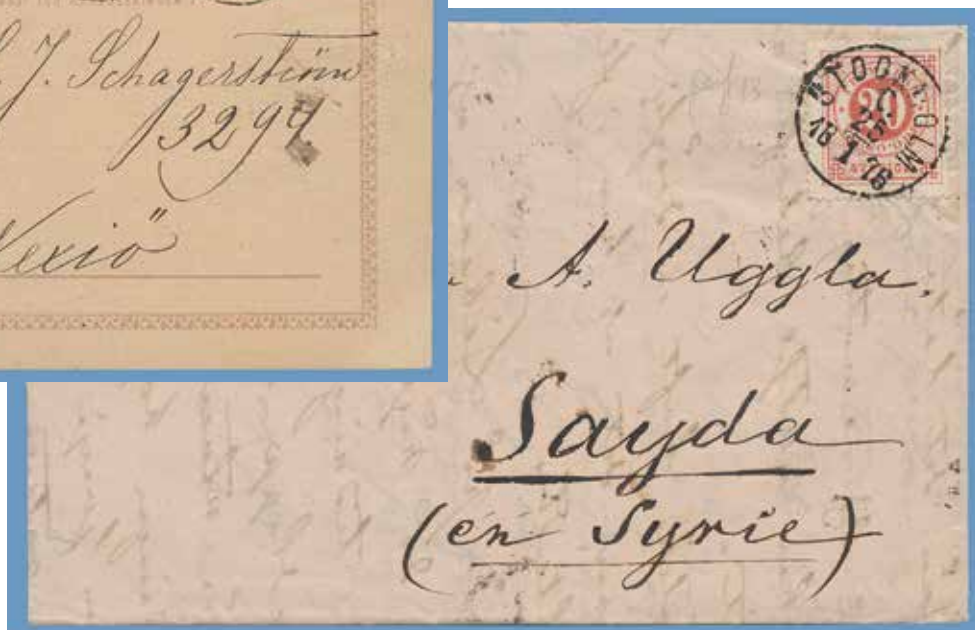 J. Schagerström
13294
Vexiö
STOCKHOLM
20
25
18 1 76
A. Uggla.
Sayda
(en Syrie)